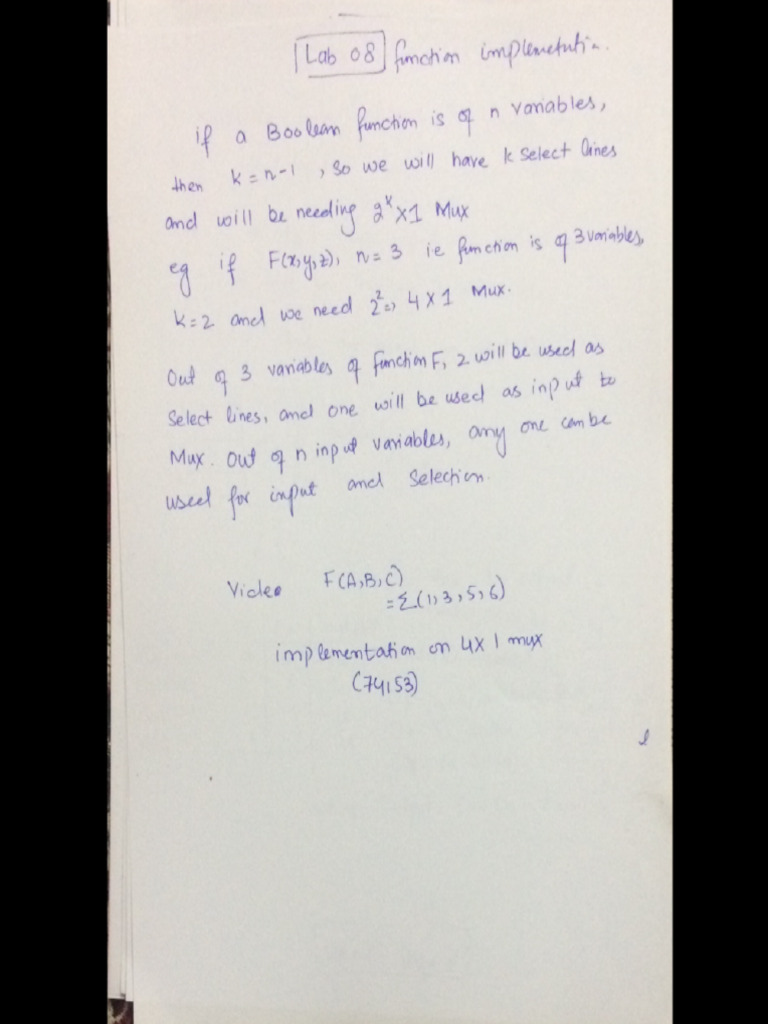 Lab 08 function implemetatin.
if a Boolean function is of n variables,
then k = n-1 , so we will have k select lines
and will be needing 2^k x1 Mux
eg if F(x,y,z), n= 3 ie function is of 3 variables,
k=2 and we need 2^2 => 4 X 1 Mux.
Out of 3 variables of function F, 2 will be used as
Select lines, and one will be used as input to
Mux. Out of n input variables, any one can be
used for input and Selection.
Video F(A,B,C)
= Σ(1,3,5,6)
implementation on 4x1 mux
(74153)